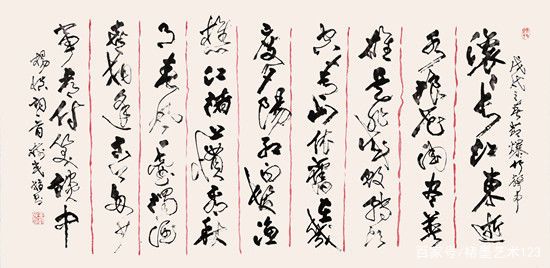 戊戌之春於爆竹聲中
滚滚長江東逝
水浪花淘盡英
雄是非成敗轉頭
空青山依舊在幾
度夕陽紅白髮漁
樵江渚上慣看秋
月春風一壺濁酒
喜相逢古今多少
事都付笑談中
楊慎詞一首
百家号/楮墨艺术123